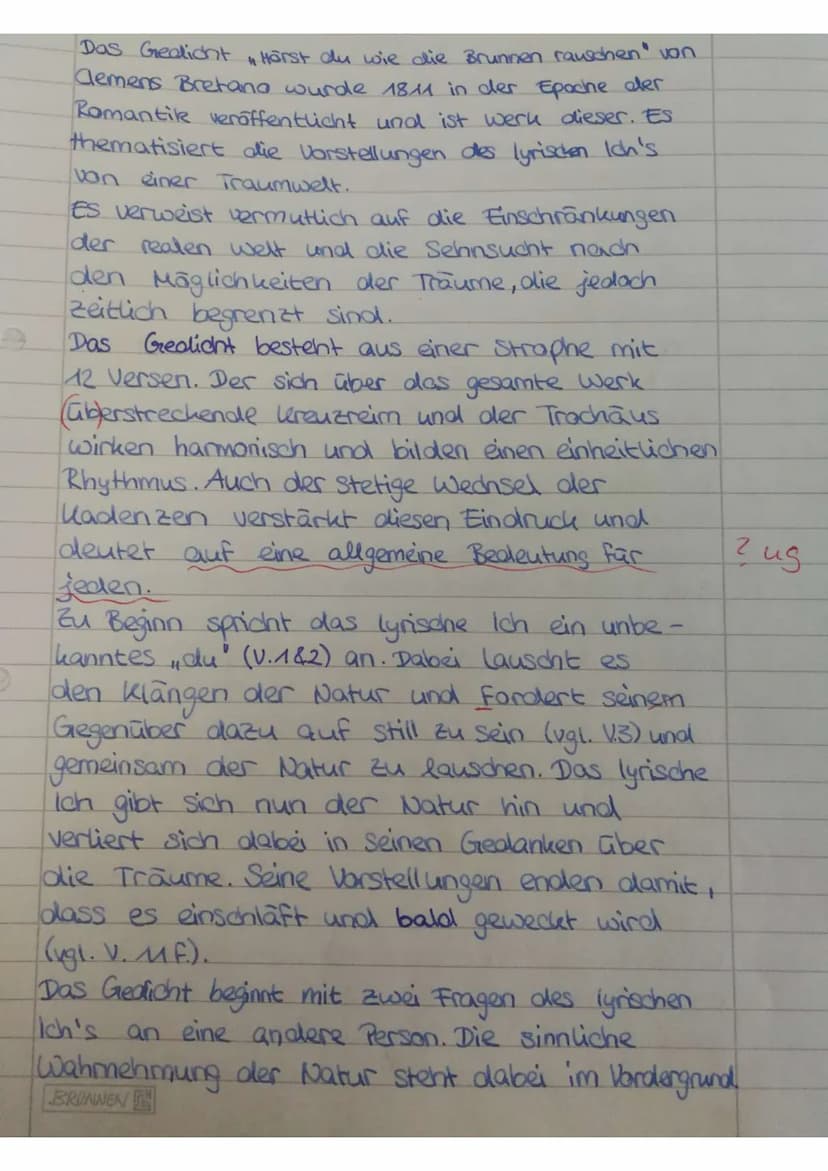 Das Gedicht „Hörst du wie die Brunnen rauschen" von
Clemens Bretano wurde 1811 in der Epoche der
Romantik veröffentlicht und ist werk dieser. Es
thematisiert die Vorstellungen des lyrischen Ich's
von einer Traumwelt.
Es verweist vermutlich auf die Einschränkungen
der realen Welt und die Sehnsucht nach
den Möglichkeiten der Träume, die jedoch
zeitlich begrenzt sind.
Das Gedicht besteht aus einer Strophe mit
12 Versen. Der sich über das gesamte Werk
(über)streckende Kreuzreim und der Trochäus
wirken harmonisch und bilden einen einheitlichen
Rhythmus. Auch der stetige Wechsel der
Kadenzen verstärkt diesen Eindruck und
deutet auf eine allgemeine Bedeutung für ? ug
jeden.
Zu Beginn spricht das lyrische Ich ein unbe-
kanntes „du" (V.1&2) an. Dabei lauscht es
den Klängen der Natur und fordert seinem
Gegenüber dazu auf still zu sein (vgl. V.3) und
gemeinsam der Natur zu lauschen. Das lyrische
Ich gibt sich nun der Natur hin und
verliert sich dabei in seinen Gedanken über
die Träume. Seine Vorstellungen enden damit,
dass es einschläft und bald geweckt wird
(vgl. V. 11 f.).
Das Gedicht beginnt mit zwei Fragen des lyrischen
Ich's an eine andere Person. Die sinnliche
Wahrnehmung der Natur steht dabei im Vordergrund
BRUNNEN